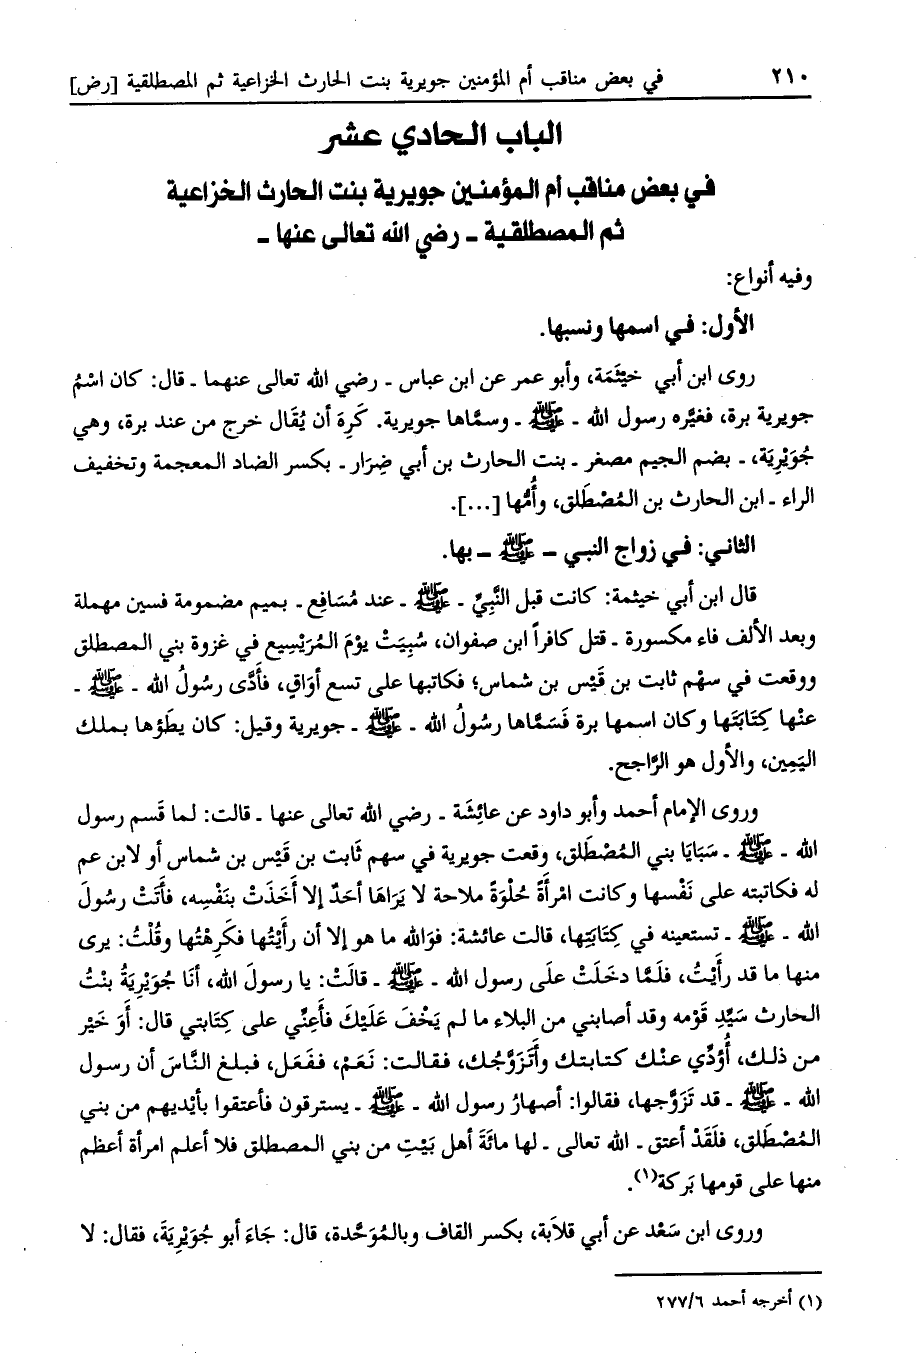 ٢١٠ في بعض مناقب أم المؤمنين جويرية بنت الحارث الخزاعية ثم المصطلقية [رض]
الباب الحادي عشر
في بعض مناقب أم المؤمنين جويرية بنت الحارث الخزاعية
ثم المصطلقية ـ رضي الله تعالى عنها ـ
وفيه أنواع:
الأول: في اسمها ونسبها.
روى ابن أبي خيثَمَة، وأبو عمر عن ابن عباس ـ رضي الله تعالى عنهما ـ قال: كان اسْمُ
جويرية برة، فغيَّره رسول الله ـ ﷺ ـ وسمَّاها جويرية. كَرِهَ أن يُقَال خرج من عند برة، وهي
جُوَيْرِيَة، ـ بضم الجيم مصغر ـ بنت الحارث بن أبي ضِرَار ـ بكسر الضاد المعجمة وتخفيف
الراء ـ ابن الحارث بن المُصْطَلق، وأُمُّها [...].
الثاني: في زواج النبي ـ ﷺ ـ بها.
قال ابن أبي خيثمة: كانت قبل النَّبِيِّ ـ ﷺ ـ عند مُسَافِع ـ بميم مضمومة فسين مهملة
وبعد الألف فاء مكسورة ـ قتل كافراً ابن صفوان، سُبِيَتْ يوْمَ المُرَيْسِيع في غزوة بني المصطلق
ووقعت في سهْم ثابت بن قَيْس بن شماس؛ فكاتبها على تسع أوَاقٍ، فأَدَّى رسُولُ الله ـ ﷺ ـ
عنْها كِتَابَتَها وكان اسمها برة فَسَمَّاها رسُولُ الله ـ ﷺ ـ جويرية وقيل: كان يطَؤها بملك
اليَمِين، والأول هو الرَّاجح.
وروى الإمام أحمد وأبو داود عن عائِشَة ـ رضي الله تعالى عنها ـ قالت: لما قَسم رسول
الله ـ ﷺ ـ سَبَايَا بني المُصْطَلق، وقعت جويرية في سهم ثابت بن قَيْس بن شماس أو لابن عم
له فكاتبته على نَفْسها وكانت امْرأَةً حُلْوَةً ملاحة لا يَرَاهَا أحَدٌ إلا أَخَذَتْ بنَفْسِه، فأتَتْ رسُولَ
الله ـ ﷺ ـ تستعينه في كِتَابَتِها، قالت عائشة: فوَالله ما هو إلا أن رأَيْتُها فكَرِهْتُها وقُلْتُ: يرى
منها ما قد رأَيْتُ، فلَمَّا دخَلَتْ علَى رسول الله ـ ﷺ ـ قالَتْ: يا رسولَ الله، أنَا جُوَيْرِيَةُ بنْتُ
الحارث سَيِّدِ قَوْمه وقد أصابني من البلاء ما لم يَخْفَ عَلَيْكَ فأَعِنِّي على كِتَابتي قال: أوَ خَيْر
من ذلك، أُؤَدِّي عنْك كتابتك وأتَزَوَّجك، فقالت: نَعَمْ، ففَعَل، فبلغ النَّاسَ أن رسول
الله ـ ﷺ ـ قد تَزَوَّجها، فقالوا: أصهارُ رسول الله ـ ﷺ ـ يسترقون فأعتقوا بأيْديهم من بني
المُصْطَلق، فلَقَدْ أعتق ـ الله تعالى ـ لها مائَةَ أهل بَيْتٍ من بني المصطلق فلا أعلم امرأة أعظم
منها على قومها بَركة(١).
وروى ابن سَعْد عن أبي قلابَة، بكسر القاف وبالمُوَحَّدة، قال: جَاءَ أبو جُوَيْرِيَةَ، فقال: لا
(١) أخرجه أحمد ٢٧٧/٦